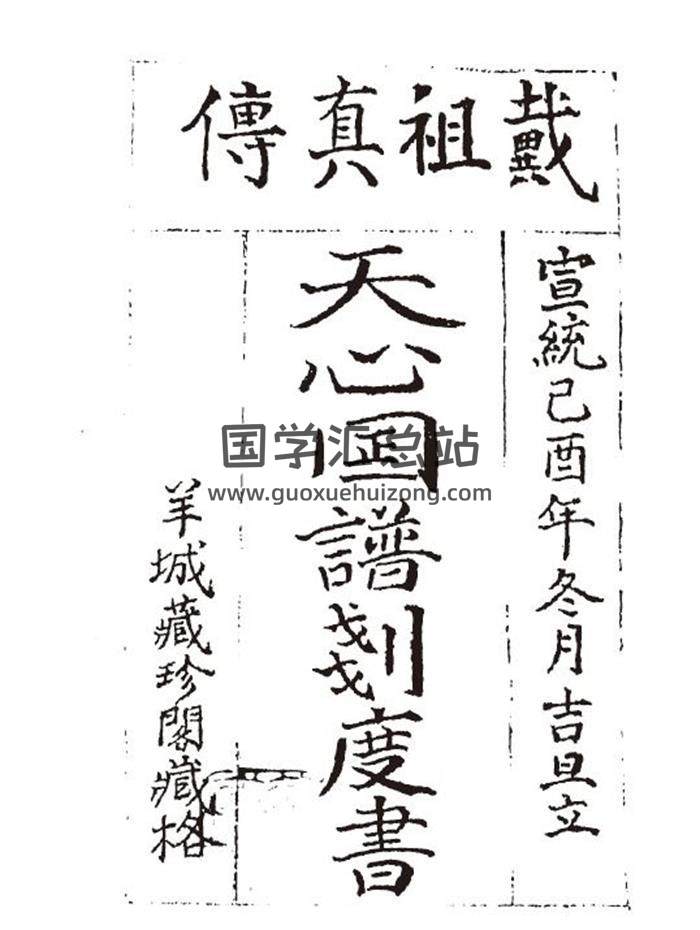 戴祖真傳
宣統己酉年冬月吉旦立
天心譜剗度書
羊城藏珍閣藏格
国学汇总站
www.guoxuehuizong.com